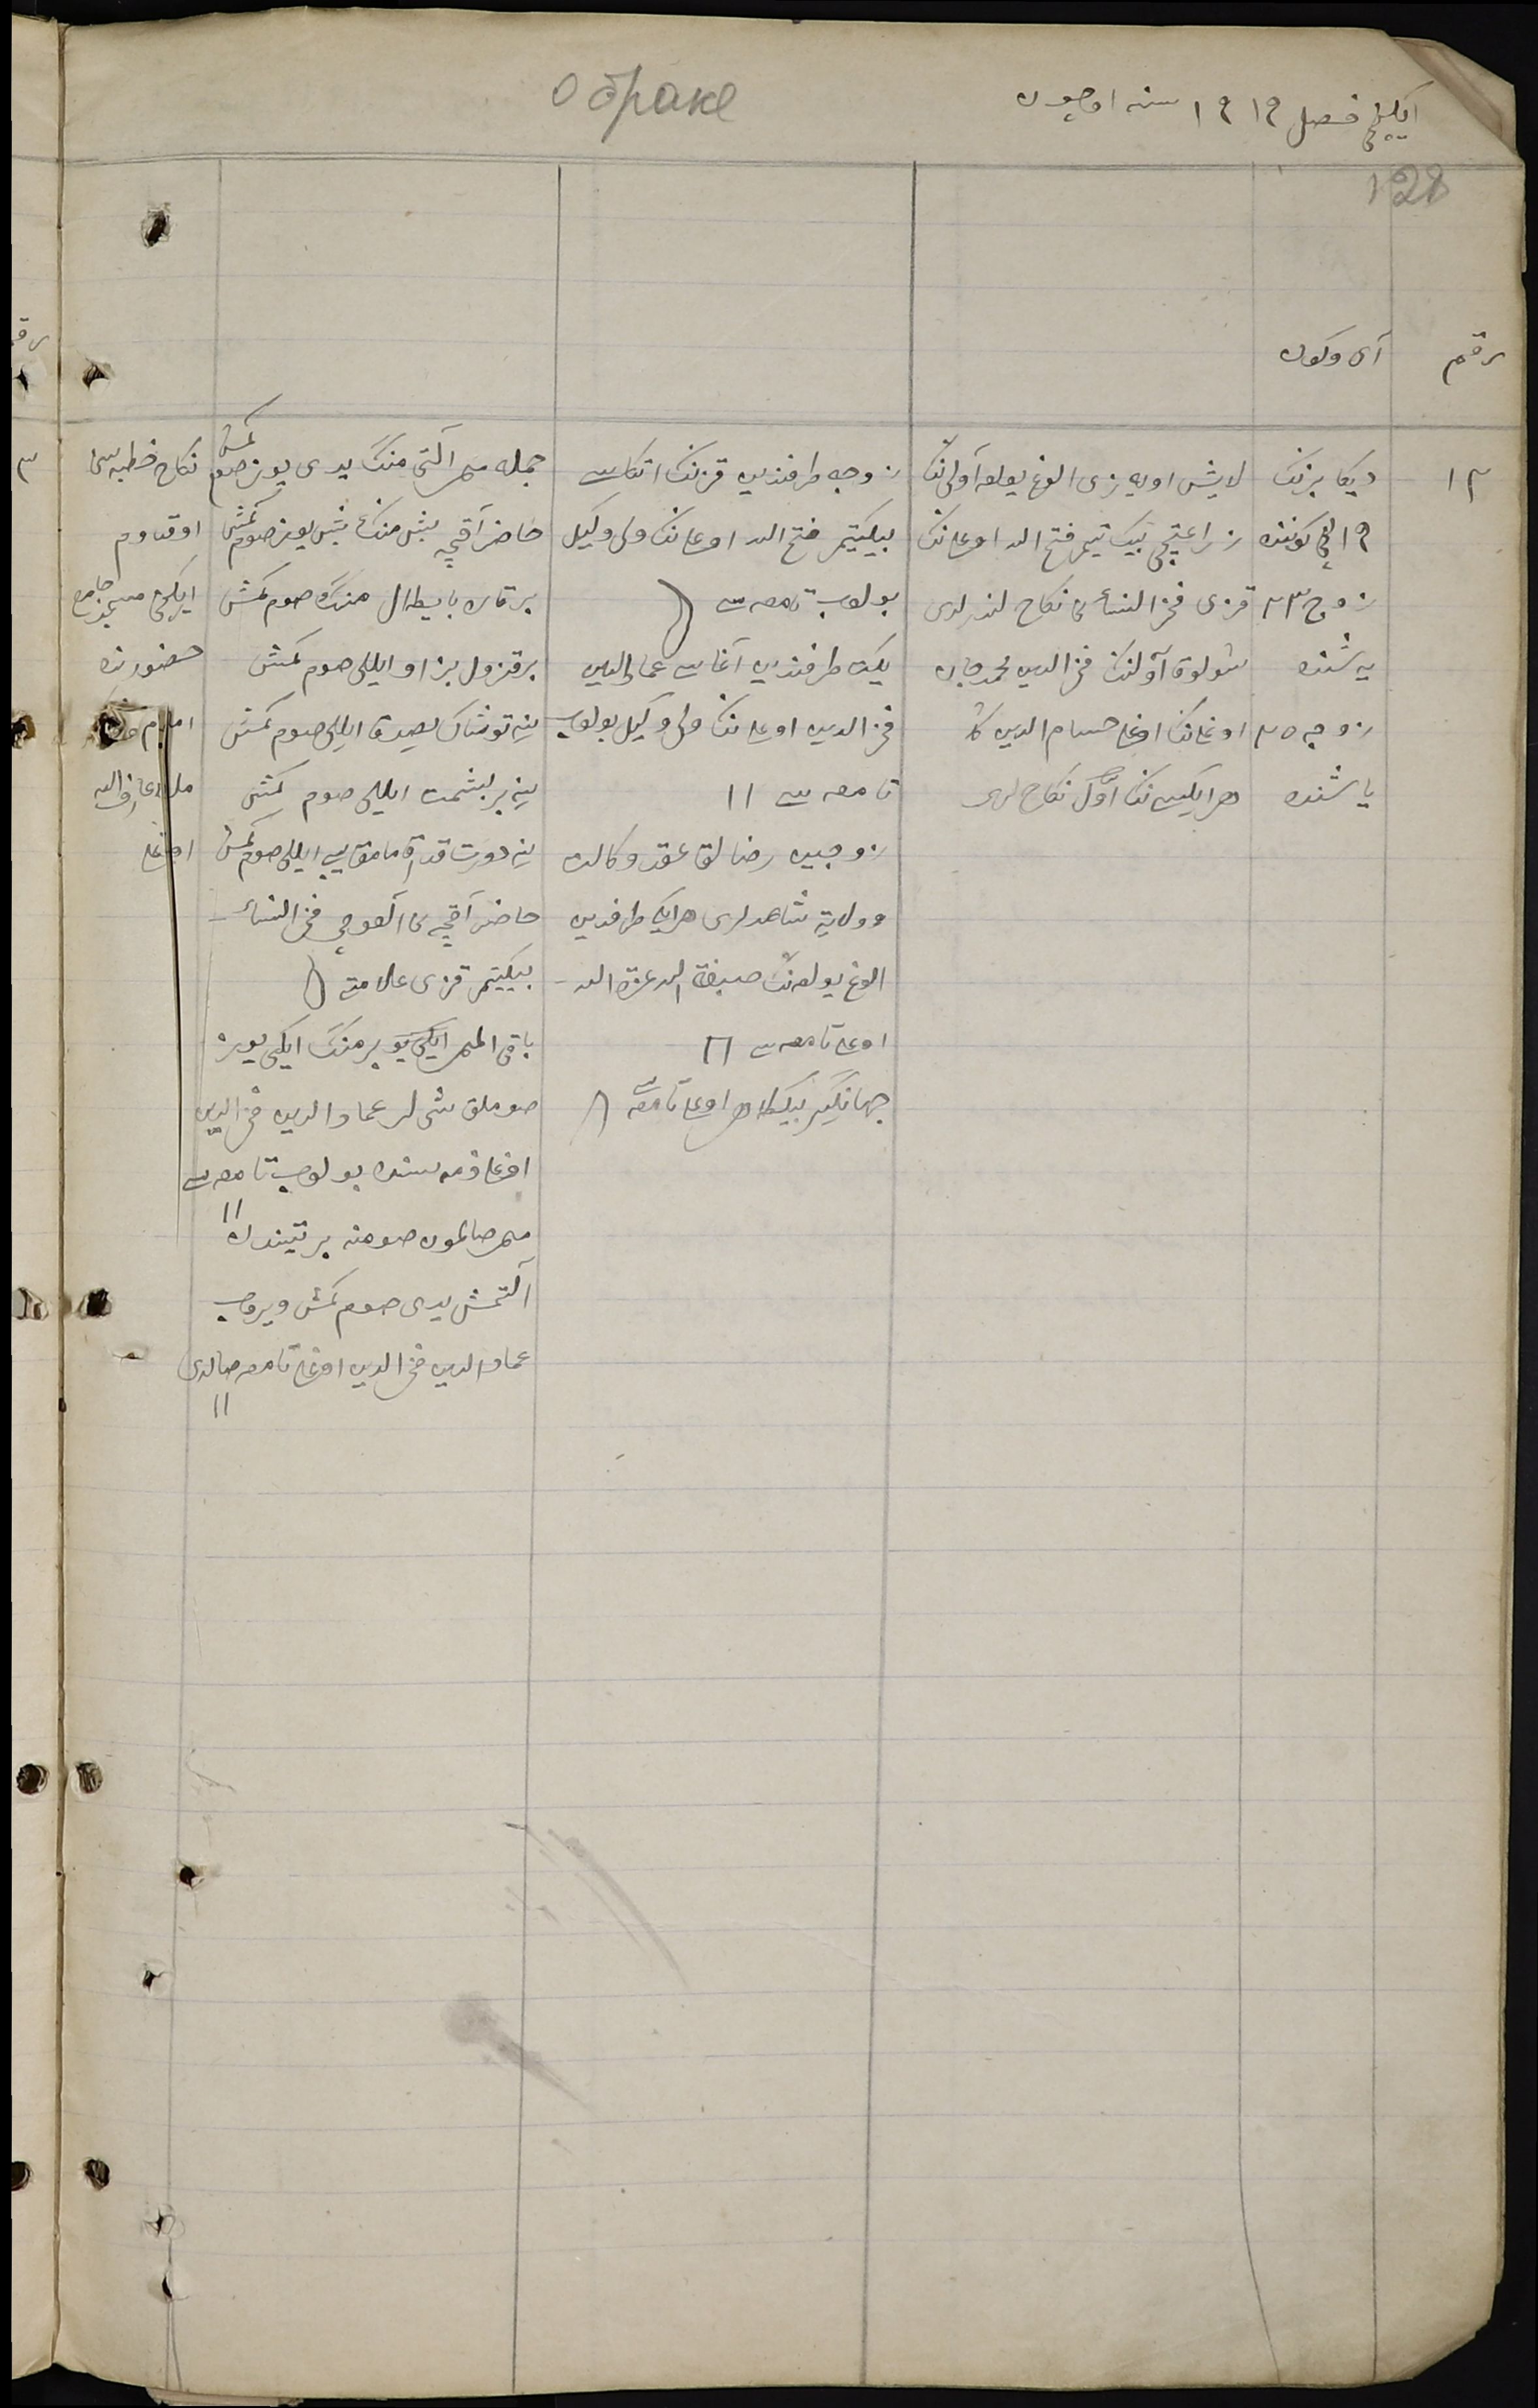 ایکنچی فصل ١٩١٩ سنه اوچون
О браке
128
رقم
آی وکون
١٢
دیکابرنڭ
١٩ نچی کوننده
زوج ٢٣
یه شنده
زوجه ٢٥
یاشنده
لایش اویه زی الوغ یولعه آولی ننڭ
زراعتچی بیك تیمر فتح الله اوغلی ننڭ
قزی فخر النساء نی نکاح لندرلدی
شولوق آولننڭ فخر الدین محمدجان
اوغلی ننڭ اوغلی حسام الدین کا
هر ایکیسی ننڭ اوّل نکاح لری
زوجه طرفندین قزننڭ اتکاسی
بیکتیمر فتح الله اوغلی ننڭ ولی وکیل
بولوب تامغه سی
یکت طرفندین آغاسی عماد الدین
فخر الدین اوغلی ننڭ ولی وکیل بولوب
تامغه سی ١١
زوجین رضالق عقد وکالت
وولایة شاهدلری هر ایکی طرفدین
الوغ یولعه ننڭ صبغة الله عزة الله
اوغلی تامغه سی
جهانکیر بیکطاهر اوغلی تامغه سی
جمله مهر آلتی منڭ یدی یوز صوم کمش
حاضر آقچه بش منڭ بش یوز صوم کمش
بر قاره بایطال منڭ صوم کمش
بر قزول بزاو ایللی صوم کمش
ینه توشاك یصدق ایللی صوم کمش
ینه بر بشمت ایللی صوم کمش
ینه دورت قداق مامق ایللی صوم کمش
حاضر آقچه نی آلغوچی فخر النساء
بیکتیمر قزی علامتی
باقی المهر ایکی یو بر منڭ ایکی یوز
صوملق شی لر عماد الدین فخر الدین
اوغلی ذمه سنده بولوب تامغه سی
١١
مهر صالمون صومنه بر تیندن
آلتمش یدی صوم کمش ویروب
عماد الدین فخر الدین اوغلی تامغه صالدی
١١
نکاح خطبه سن
اوقدوم
ایکنچی مسجد جامع
حضورنده
امام
ملا عارف الله
اوغلی